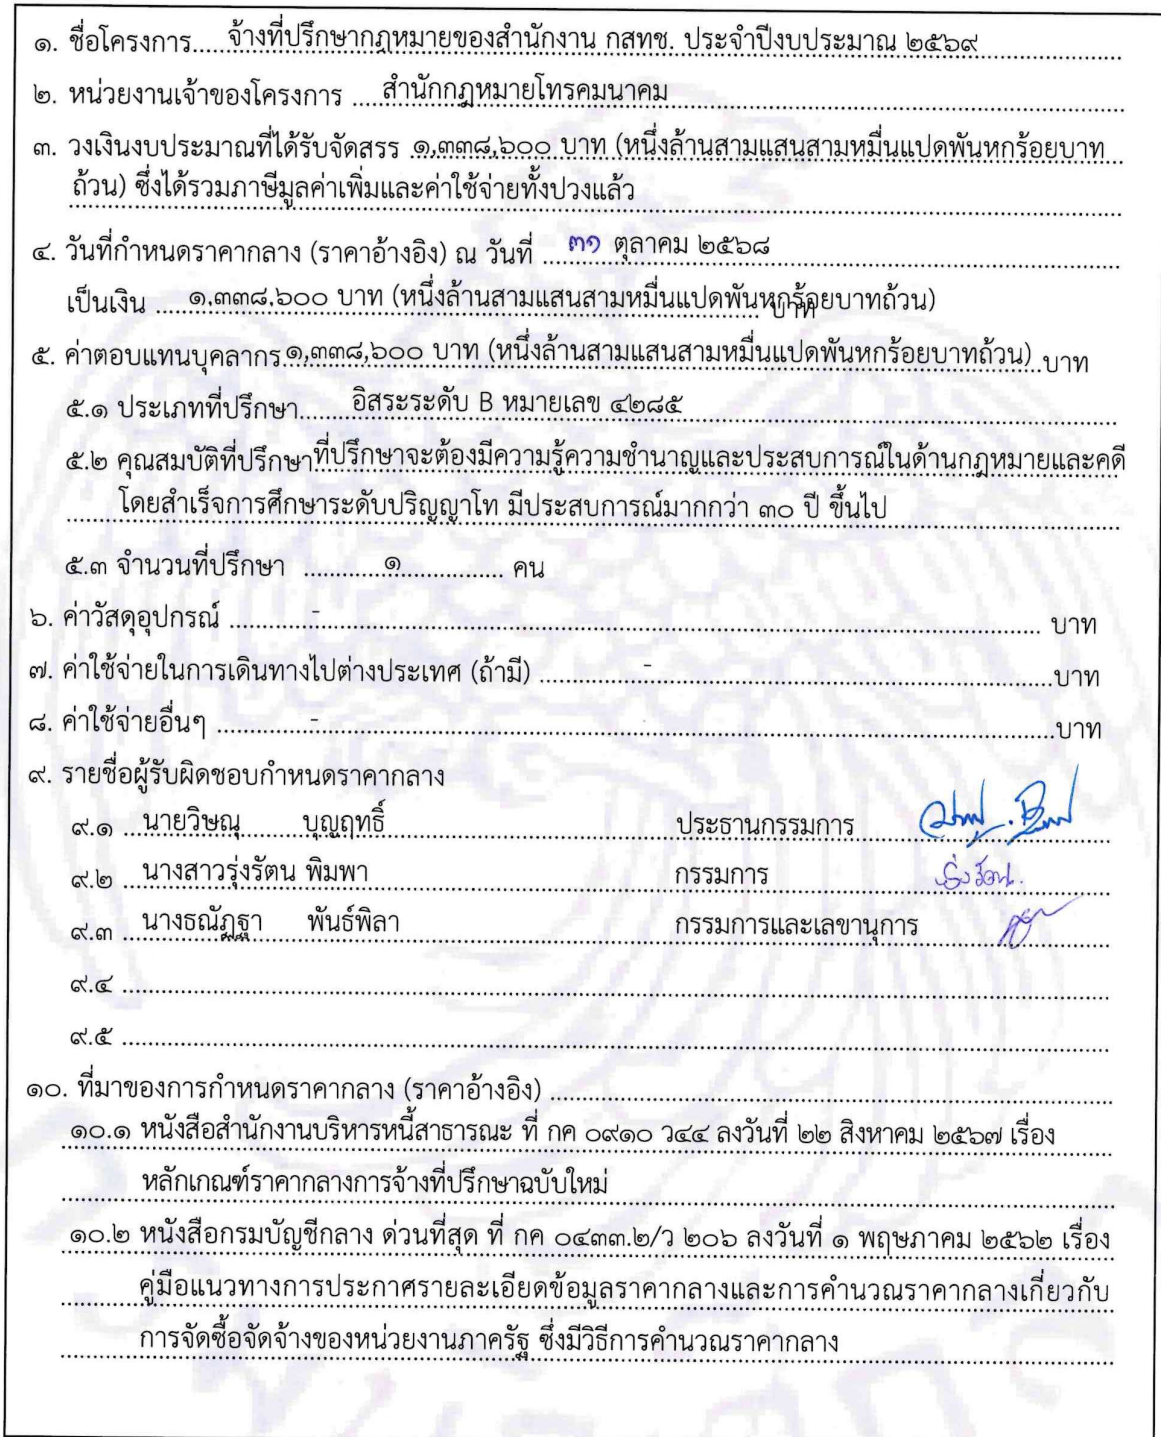 ๑. ชื่อโครงการ.....จ้างที่ปรึกษากฎหมายของสำนักงาน กสทช. ประจำปีงบประมาณ ๒๕๖๙
๒. หน่วยงานเจ้าของโครงการ ....สำนักกฎหมายโทรคมนาคม
๓. วงเงินงบประมาณที่ได้รับจัดสรร ๑,๓๓๘,๖๐๐ บาท (หนึ่งล้านสามแสนสามหมื่นแปดพันหกร้อยบาท
ถ้วน) ซึ่งได้รวมภาษีมูลค่าเพิ่มและค่าใช้จ่ายทั้งปวงแล้ว
๔. วันที่กำหนดราคากลาง (ราคาอ้างอิง) ณ วันที่ ๓๑ ตุลาคม ๒๕๖๘
เป็นเงิน ๑,๓๓๘,๖๐๐ บาท (หนึ่งล้านสามแสนสามหมื่นแปดพันหกร้อยบาทถ้วน) บาท
๕. ค่าตอบแทนบุคลากร ๑,๓๓๘,๖๐๐ บาท (หนึ่งล้านสามแสนสามหมื่นแปดพันหกร้อยบาทถ้วน) บาท
๕.๑ ประเภทที่ปรึกษา อิสระระดับ B หมายเลข ๔๒๘๕
๕.๒ คุณสมบัติที่ปรึกษาที่ปรึกษาจะต้องมีความรู้ความชำนาญและประสบการณ์ในด้านกฎหมายและคดี
โดยสำเร็จการศึกษาระดับปริญญาโท มีประสบการณ์มากกว่า ๓๐ ปี ขึ้นไป
๕.๓ จำนวนที่ปรึกษา ............๑............ คน
๖. ค่าวัสดุอุปกรณ์ ............-............ บาท
๗. ค่าใช้จ่ายในการเดินทางไปต่างประเทศ (ถ้ามี) ............-............บาท
๘. ค่าใช้จ่ายอื่นๆ ............-............บาท
๙. รายชื่อผู้รับผิดชอบกำหนดราคากลาง
๙.๑ นายวิษณุ บุญฤทธิ์ ประธานกรรมการ
๙.๒ นางสาวรุ่งรัตน พิมพา กรรมการ รุ่งรัตน.
๙.๓ นางธณัฏฐา พันธ์พิลา กรรมการและเลขานุการ
๙.๔ ............
๙.๕ ............
๑๐. ที่มาของการกำหนดราคากลาง (ราคาอ้างอิง) ............
๑๐.๑ หนังสือสำนักงานบริหารหนี้สาธารณะ ที่ กค ๐๙๑๐ ว๔๔ ลงวันที่ ๒๒ สิงหาคม ๒๕๖๗ เรื่อง
หลักเกณฑ์ราคากลางการจ้างที่ปรึกษาฉบับใหม่
๑๐.๒ หนังสือกรมบัญชีกลาง ด่วนที่สุด ที่ กค ๐๔๓๓.๒/ว ๒๐๖ ลงวันที่ ๑ พฤษภาคม ๒๕๖๒ เรื่อง
คู่มือแนวทางการประกาศรายละเอียดข้อมูลราคากลางและการคำนวณราคากลางเกี่ยวกับ
การจัดซื้อจัดจ้างของหน่วยงานภาครัฐ ซึ่งมีวิธีการคำนวณราคากลาง